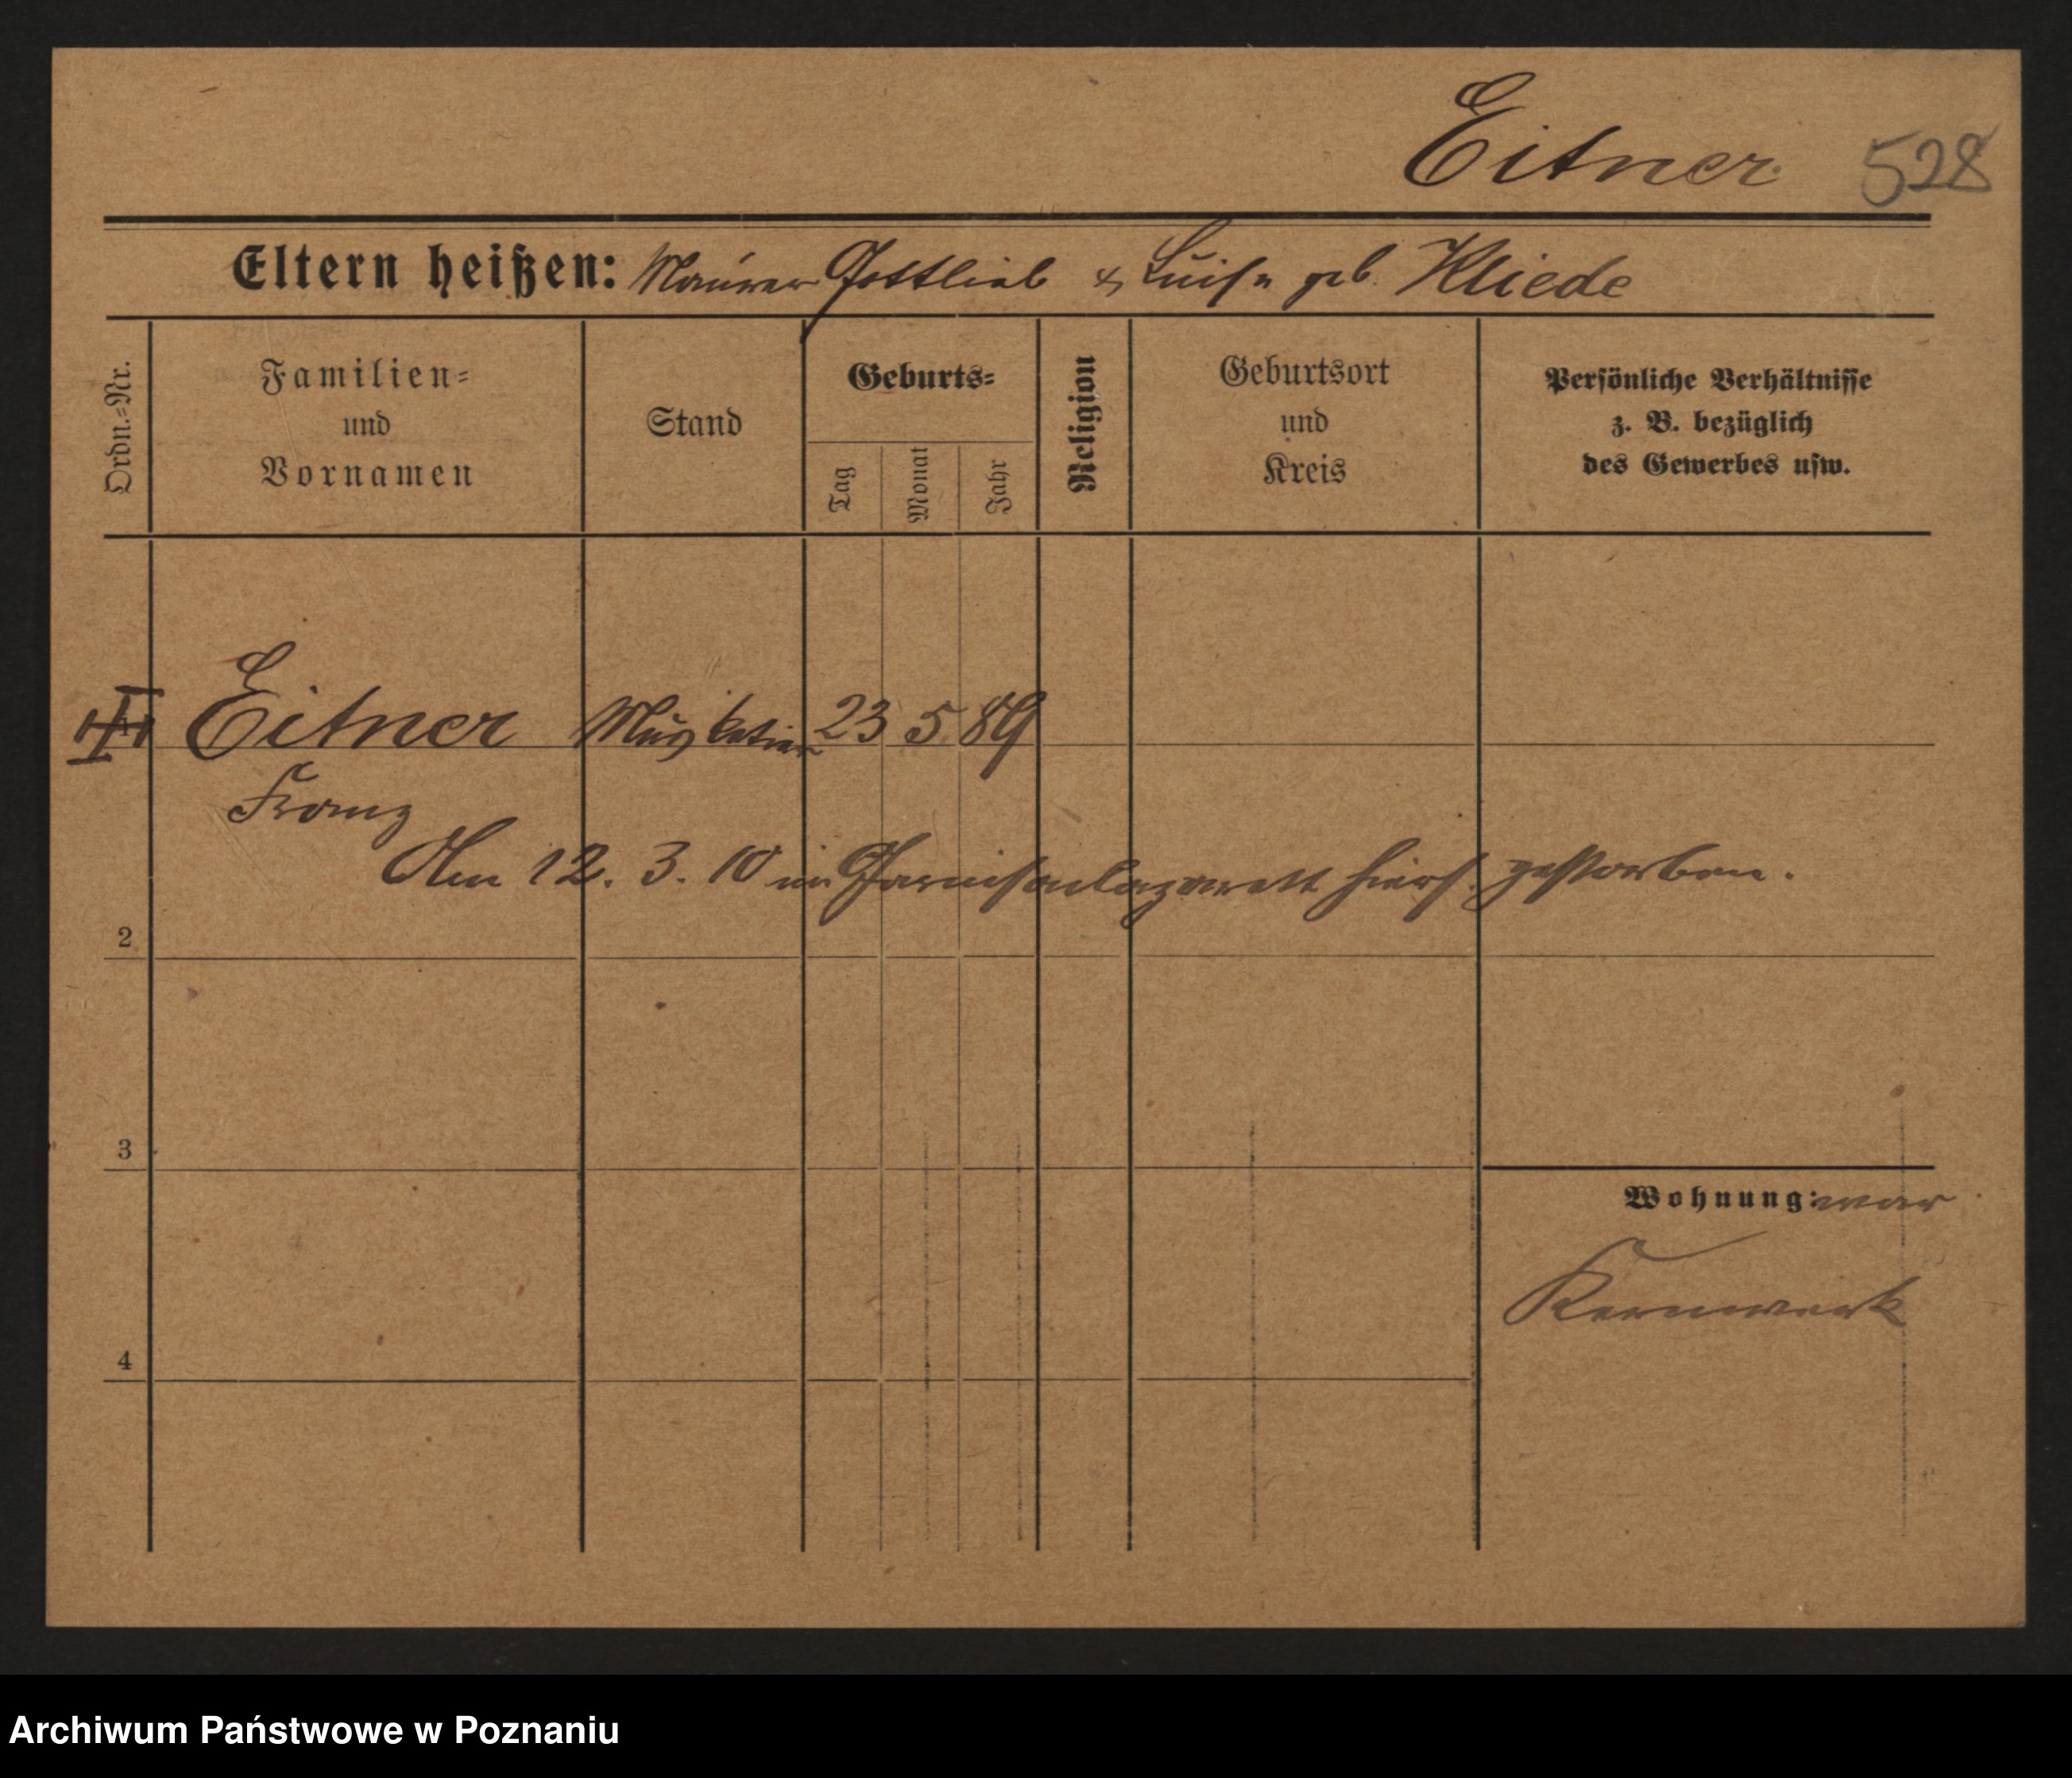 Eitner. 528
Eltern heißen: Maurer Gottlieb & Luise geb. Kliede
Ordn.=Nr.
Familien=
und
Vornamen
Stand
Geburts=
Tag
Monat
Jahr
Religion
Geburtsort
und
Kreis
Persönliche Verhältnisse
z. B. bezüglich
des Gewerbes usw.
Eitner Musketier 23 5 89
Franz
Am 12. 3. 10 im Garnisonlazarett hiers. gestorben.
2
3
Wohnung: war
Kernwerk
4
Archiwum Państwowe w Poznaniu